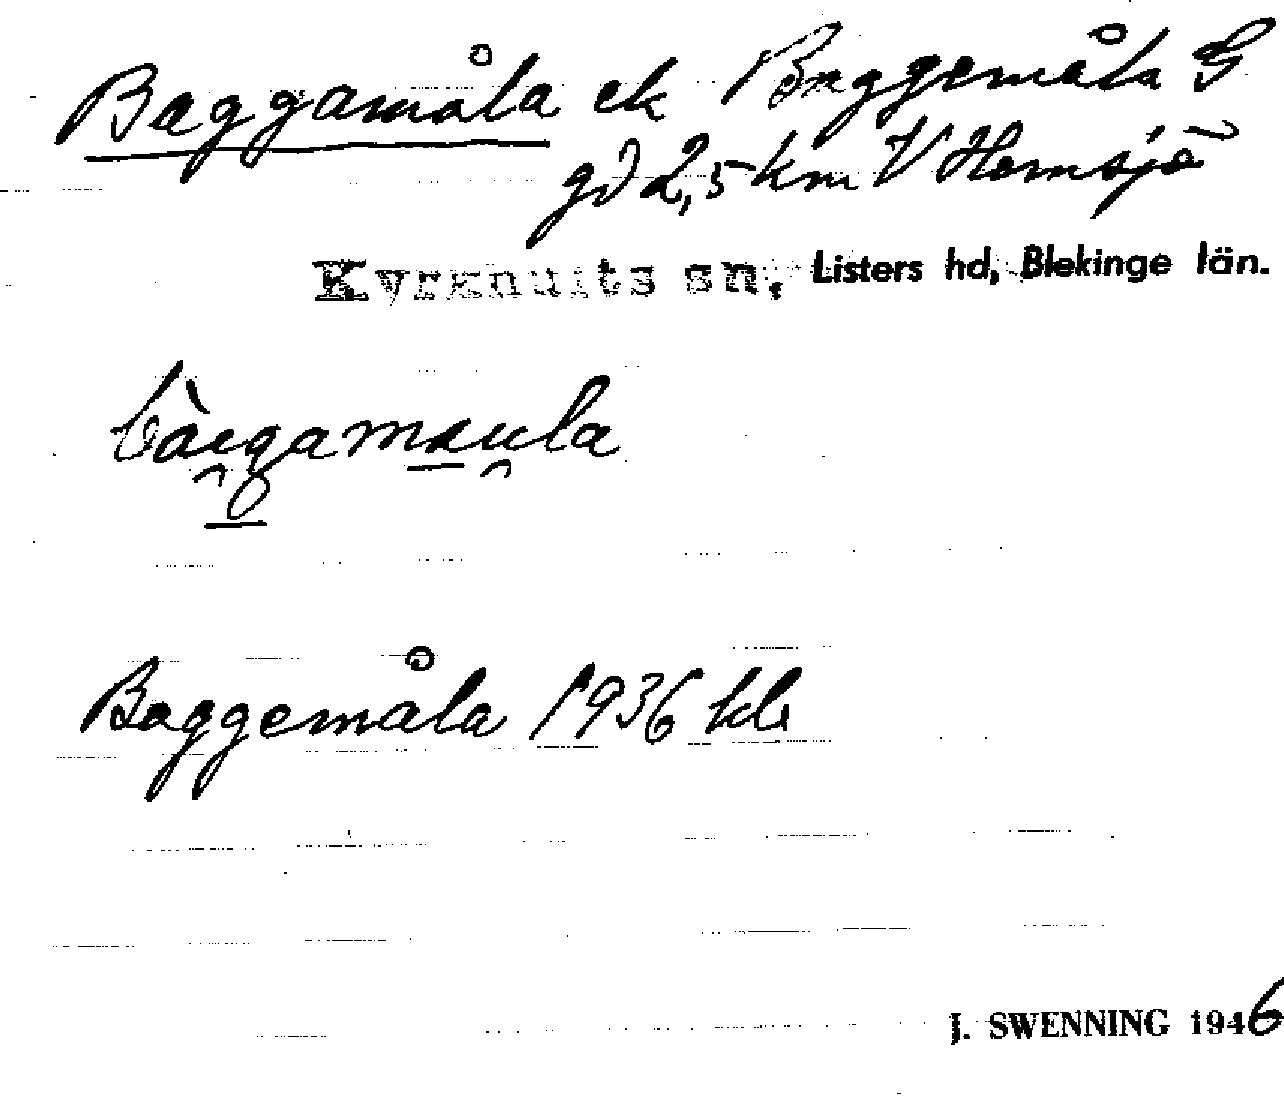 Baggamåla ek Baggemåla G
gd 2,5 km V Hemsjö
Kyrkhults sn, Listers hd, Blekinge län.
Baggemåla 1936 kl.
J. SWENNING 1946